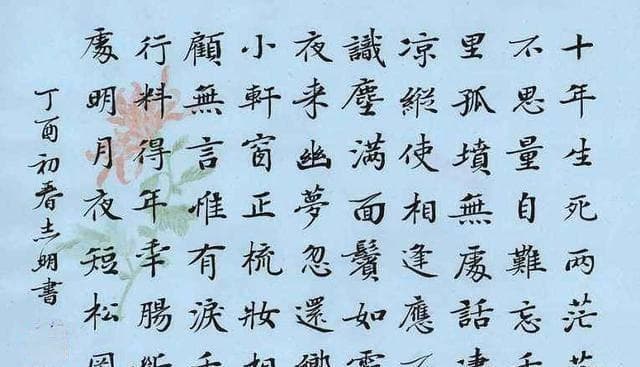 十年生死两茫茫
不思量自難忘千
里孤墳無處話凄
凉縱使相逢應不
識塵满面鬢如霜
夜来幽夢忽還鄉
小軒窗正梳妝相
顧無言惟有淚千
行料得年年腸斷
處明月夜短松岡
丁酉初春志明書